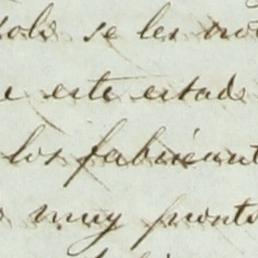 solo se les
este estado
los fabricant
muy pronto